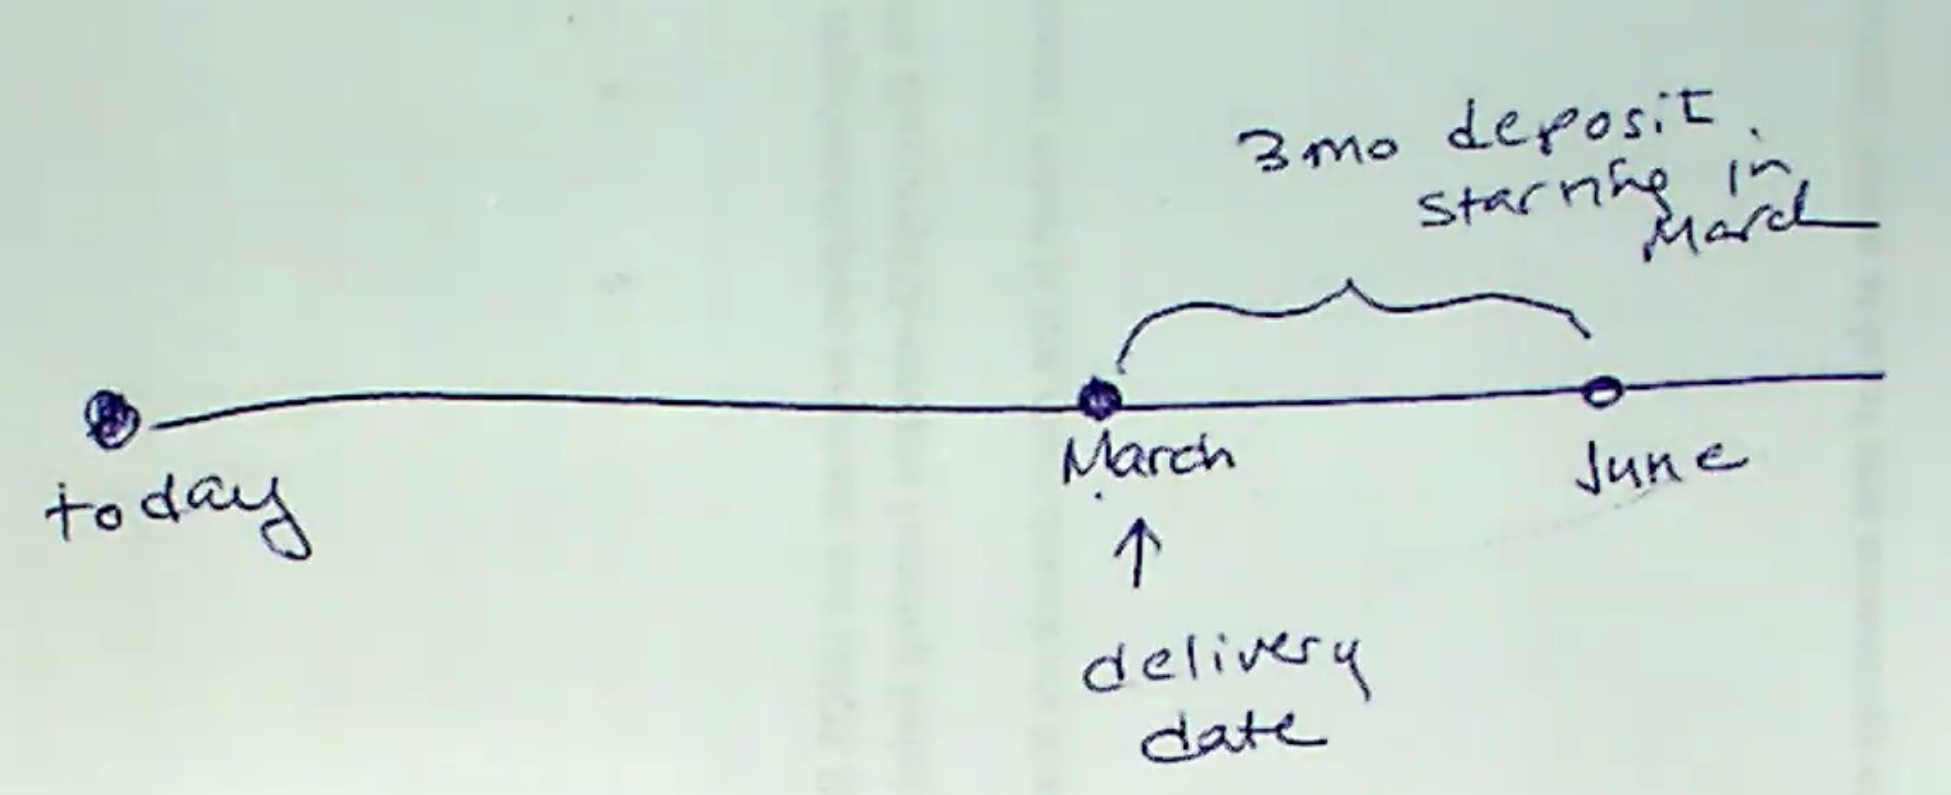 3 mo deposit.
starting in
March
today
March
June
delivery
date